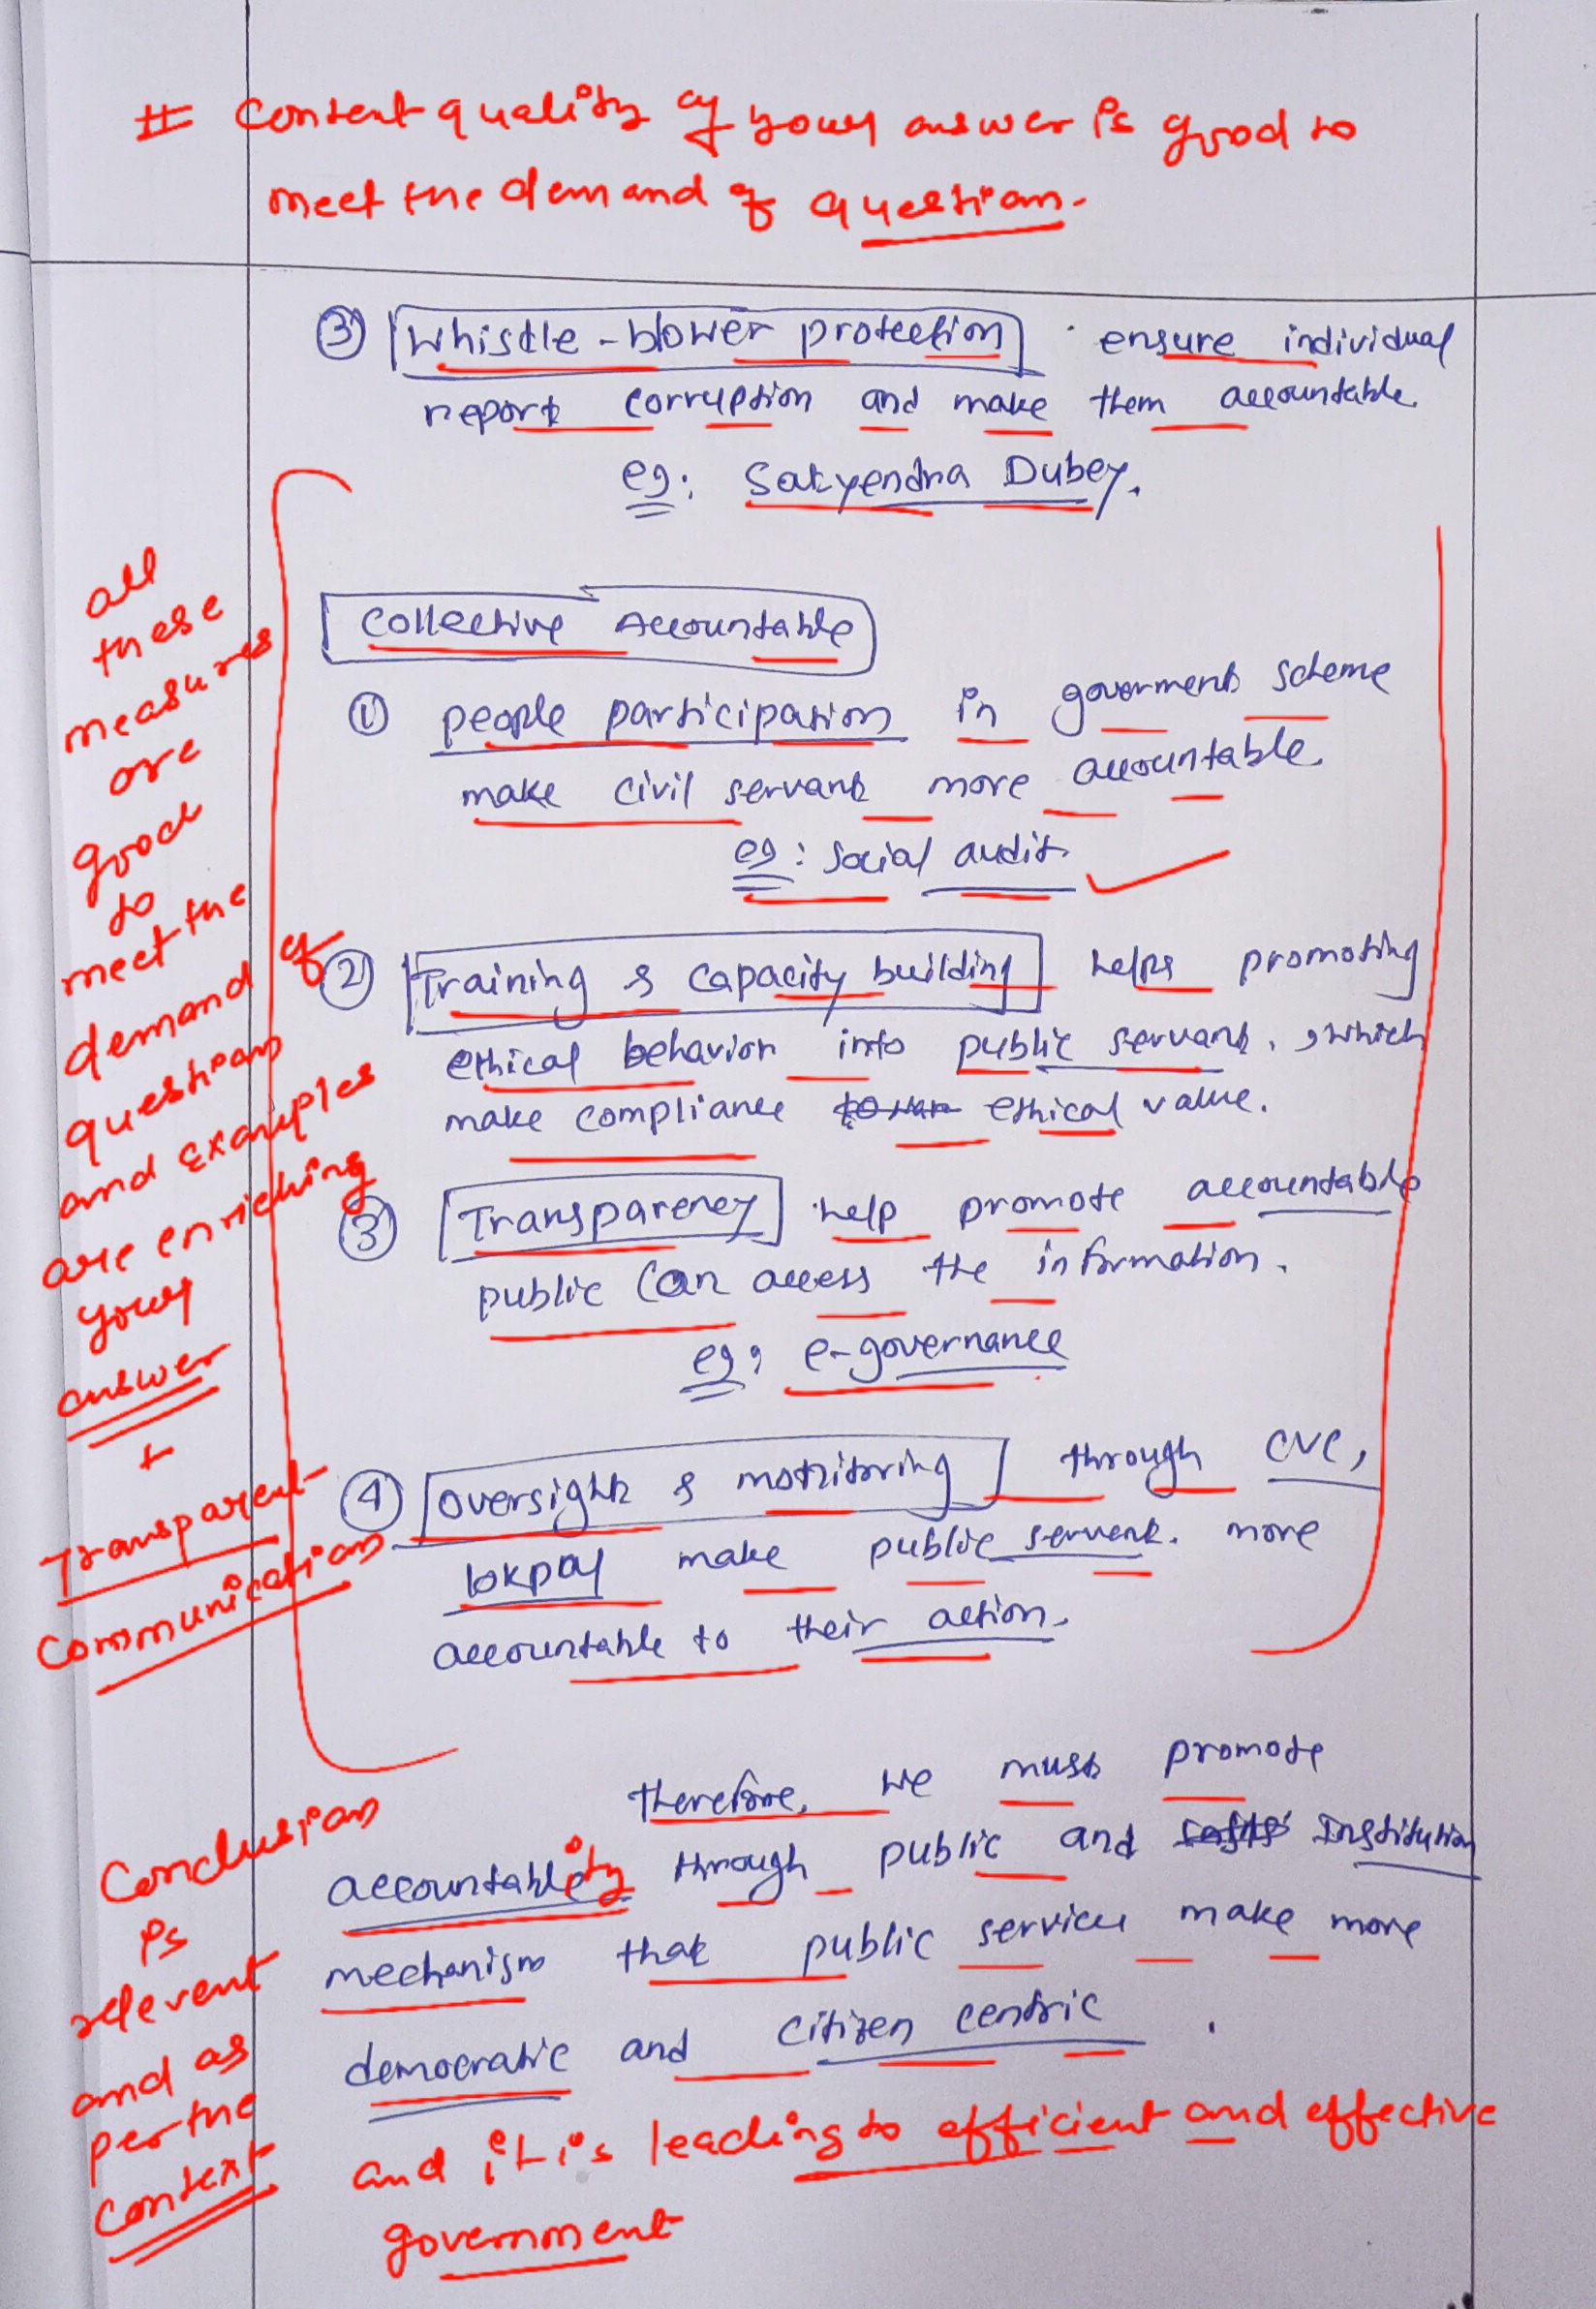 # Content quality of your answer is good to
meet the demand of question.
③ Whistle-blower protection ensure individual
report corruption and make them accountable
eg: Satyendra Dubey.
Collective Accountable
① people participation in government scheme
make civil servant more accountable.
eg: social audit.
② Training & capacity building helps promoting
ethical behavior into public servant, which
make compliance ethical value.
③ Transparency help promote accountable
public can access the information.
eg: e-governance
④ oversight & monitoring through CVC,
lokpal make public servent. more
accountable to their action.
all
these
measures
are
good
to
meet the
demand of
question
and examples
are enriching
your
answer
+
Transparent
Communication
therefore, we must promote
accountability through public and Institution
mechanism that public service make more
democratic and citizen centric.
and it is leading to efficient and effective
government
Conclusion
is
relevent
and as
per the
context